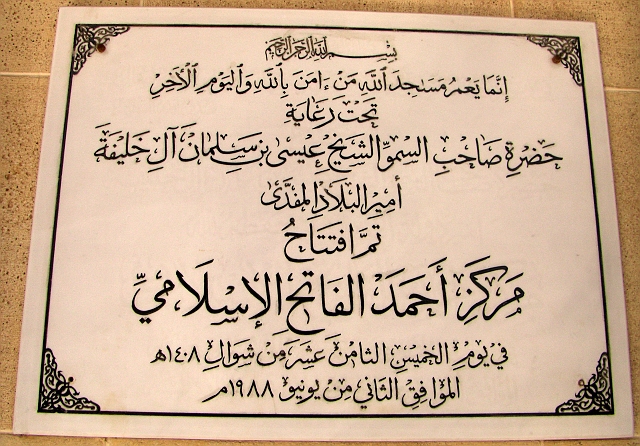 بسم الله الرحمن الرحيم
إنَّمَا يَعْمُرُ مَسَٰجِدَ ٱللَّهِ مَنْ ءَامَنَ بِٱللَّهِ وَٱلْيَوْمِ ٱلْأَخِرِ
تحت رعاية
حضرة صاحب السمو الشيخ عيسى بن سلمان آل خليفة
أمير البلاد المفدّى
تمّ افتتاح
مركز أحمد الفاتح الإسلاميّ
في يوم الخميس الثامن عشر من شوال ١٤٠٨هـ
الموافق الثاني من يونيو ١٩٨٨م